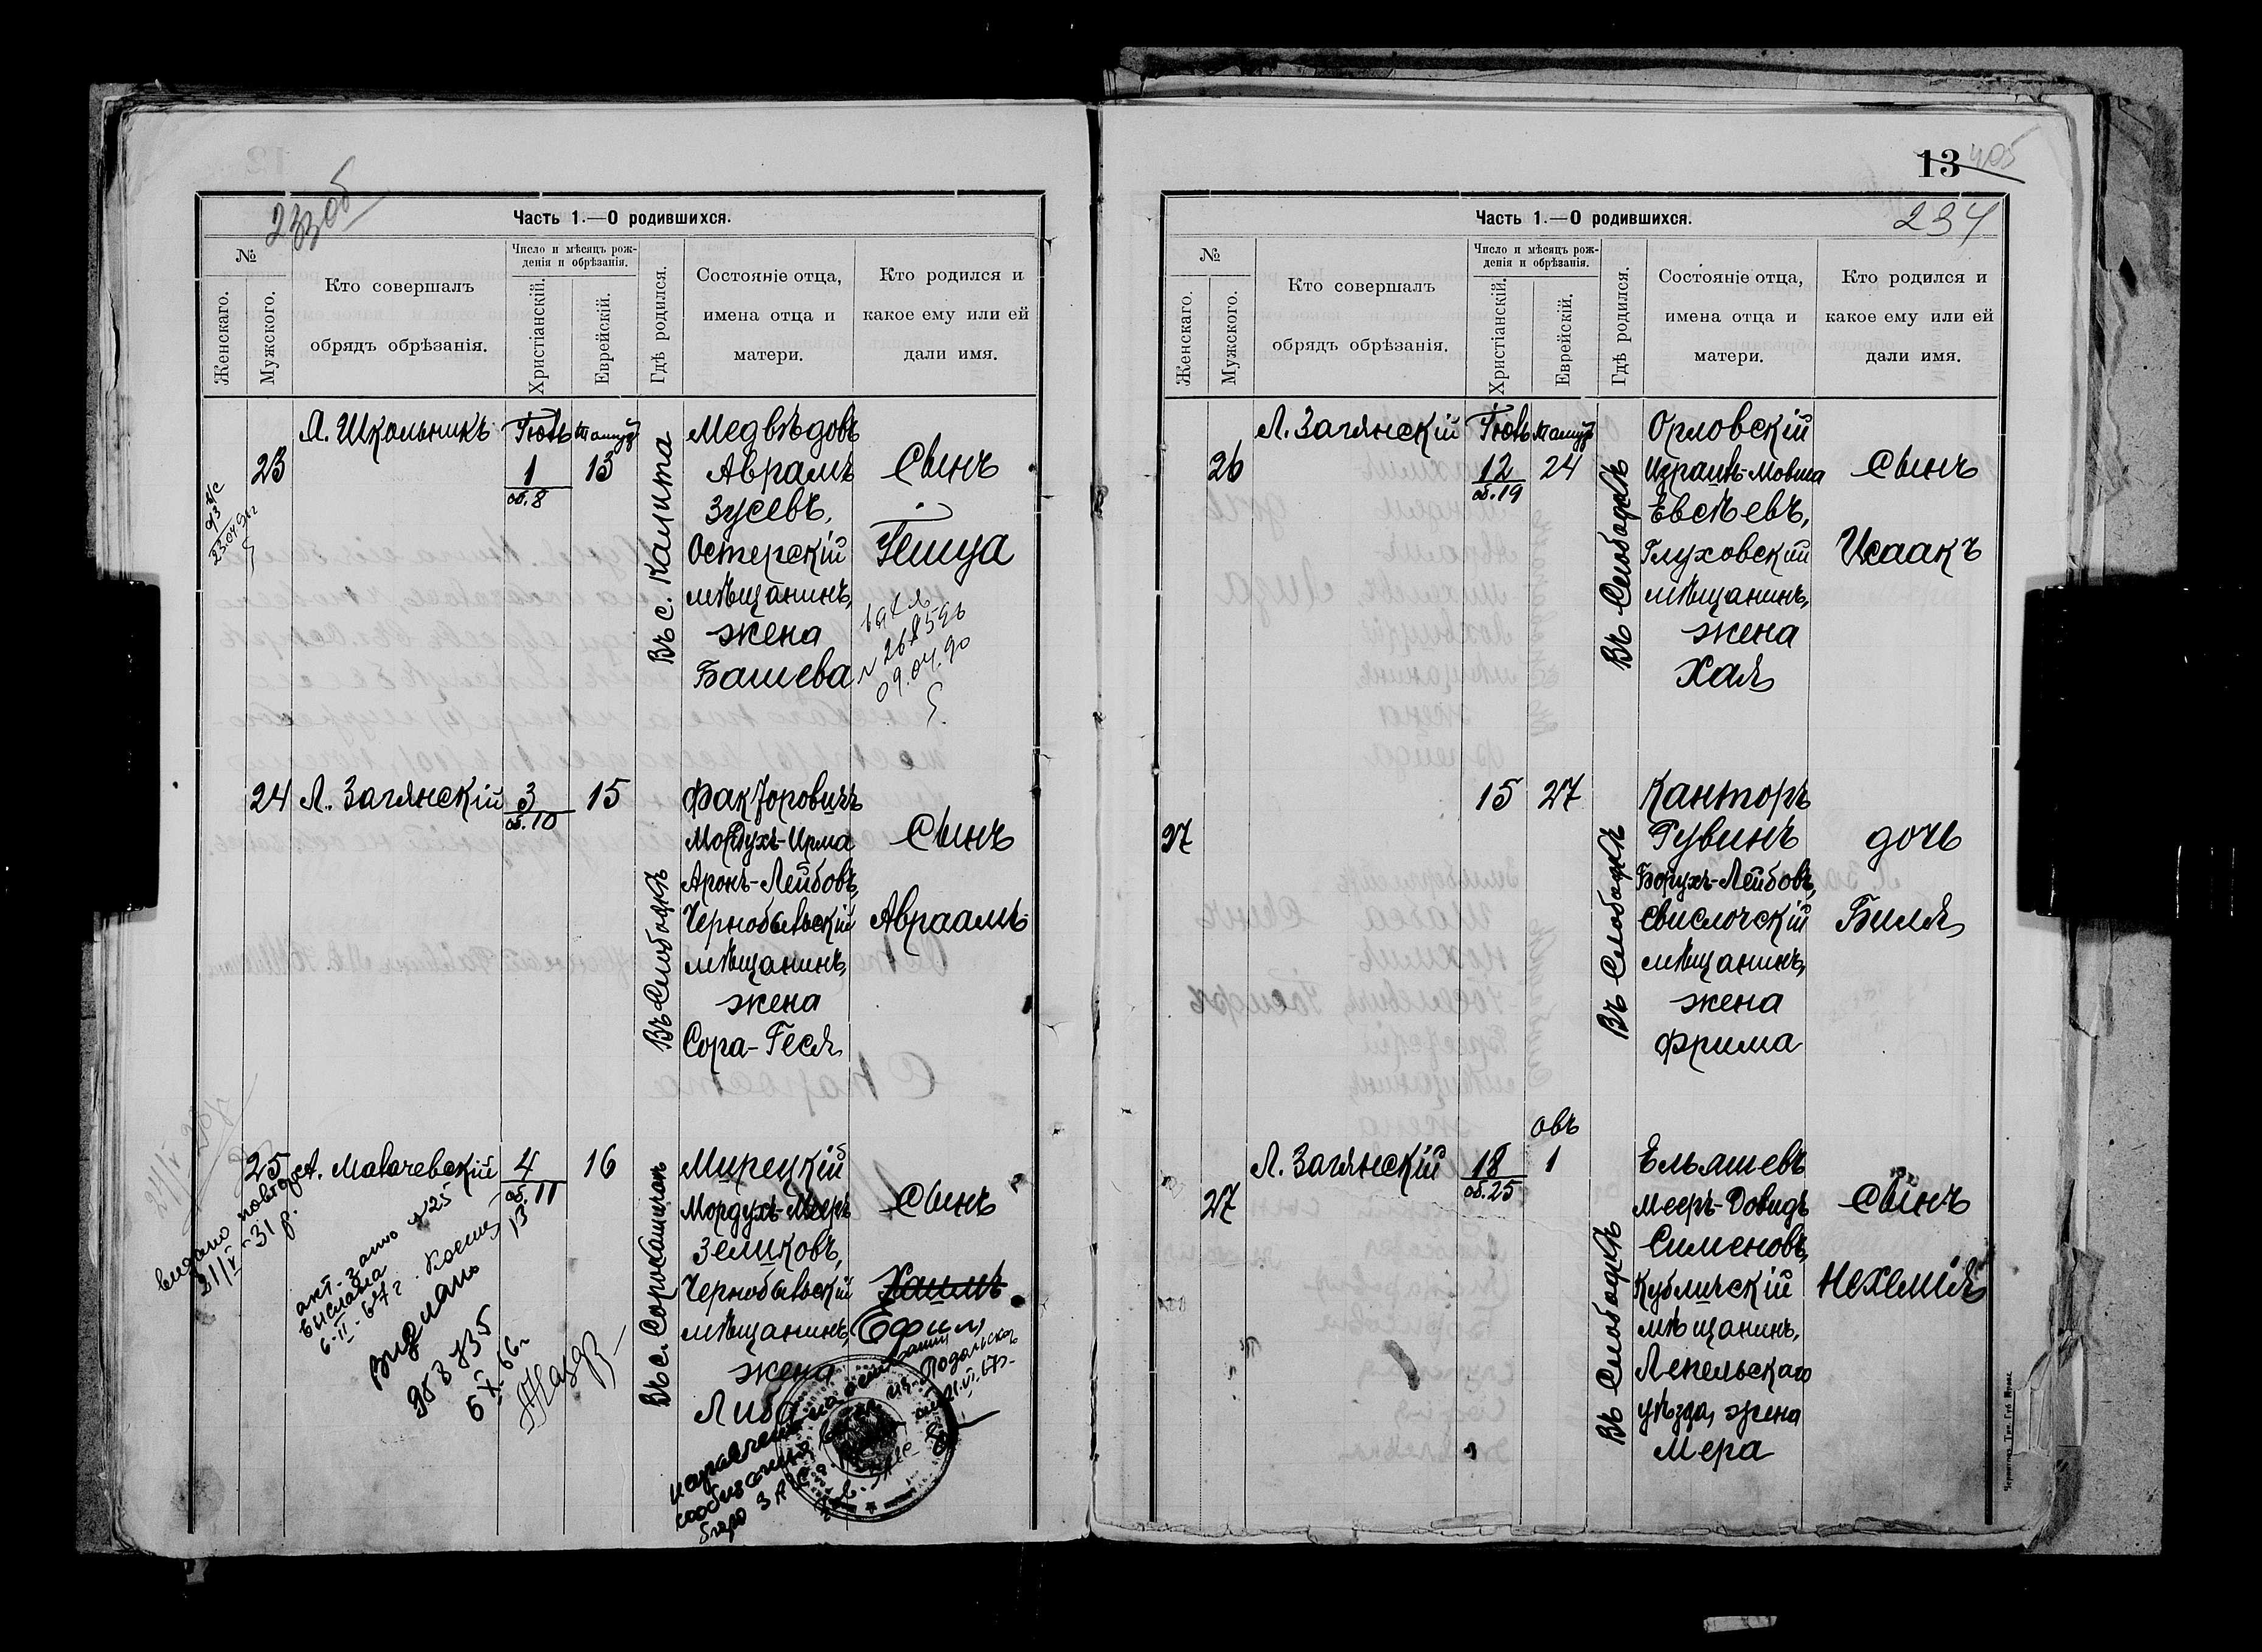 233об
Часть 1.—О родившихся.
№
Женскаго.
Мужского.
Кто совершалъ
обрядъ обрѣзанія.
Число и мѣсяцъ рож-
денія и обрѣзанія.
Христіанскій.
Еврейскій.
Гдѣ родился.
Состояніе отца,
имена отца и
матери.
Кто родился и
какое ему или ей
дали имя.
23
Л. Школьникъ
Іюль
1
об. 8
Тамузъ
13
Въ с. Калита
Медвѣдовъ
Аврамъ
Зусевъ,
Остерскій
мѣщанинъ,
жена
Башева
Сынъ
09.04.90
23.04.90г
24
Л. Загянскій
3
об. 10
15
Въ Слободкѣ
Факторовичъ
Мордухъ-Ирма
Аронъ-Лейбовъ,
Чернобыльскій
мѣщанинъ,
жена
Сора-Геся
Сынъ
Авраамъ
25
4
об. 11
16
Мирецкій
Мордухъ-Мееръ
Зеликовъ,
Чернобыльскій
мѣщанинъ,
жена
Либа
Сынъ
Хаимъ
Ефим
видано повторно
31 р.
акт. запис №25
6-II-67г.
видано
953435
5 X 66г
13 405
234
Часть 1.—О родившихся.
№
Женскаго.
Мужского.
Кто совершалъ
обрядъ обрѣзанія.
Число и мѣсяцъ рож-
денія и обрѣзанія.
Христіанскій.
Еврейскій.
Гдѣ родился.
Состояніе отца,
имена отца и
матери.
Кто родился и
какое ему или ей
дали имя.
26
Л. Загянскій
Іюль
12
об. 19
Тамузъ
24
Въ Слободкѣ
Орловскій
Израиль-Мовша
Евсѣевъ,
Глуховскій
мѣщанинъ,
жена
Хая
Сынъ
Исаакъ
27
15
27
Въ Слободкѣ
Канторъ
Рувинъ
Борухъ-Лейбовъ,
Свислочскій
мѣщанинъ,
жена
Фрима
дочь
Биля
27
Л. Загянскій
18
об. 25
овъ
1
Въ Слободкѣ
Ельяшевъ
Мееръ-Довидъ
Сименовъ,
Кубличскій
мѣщанинъ,
Лепельскаго
уѣзда, жена
Мера
Сынъ
Нехемія